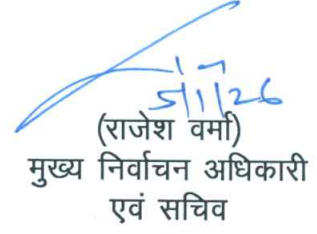 5/1/26
(राजेश वर्मा)
मुख्य निर्वाचन अधिकारी
एवं सचिव